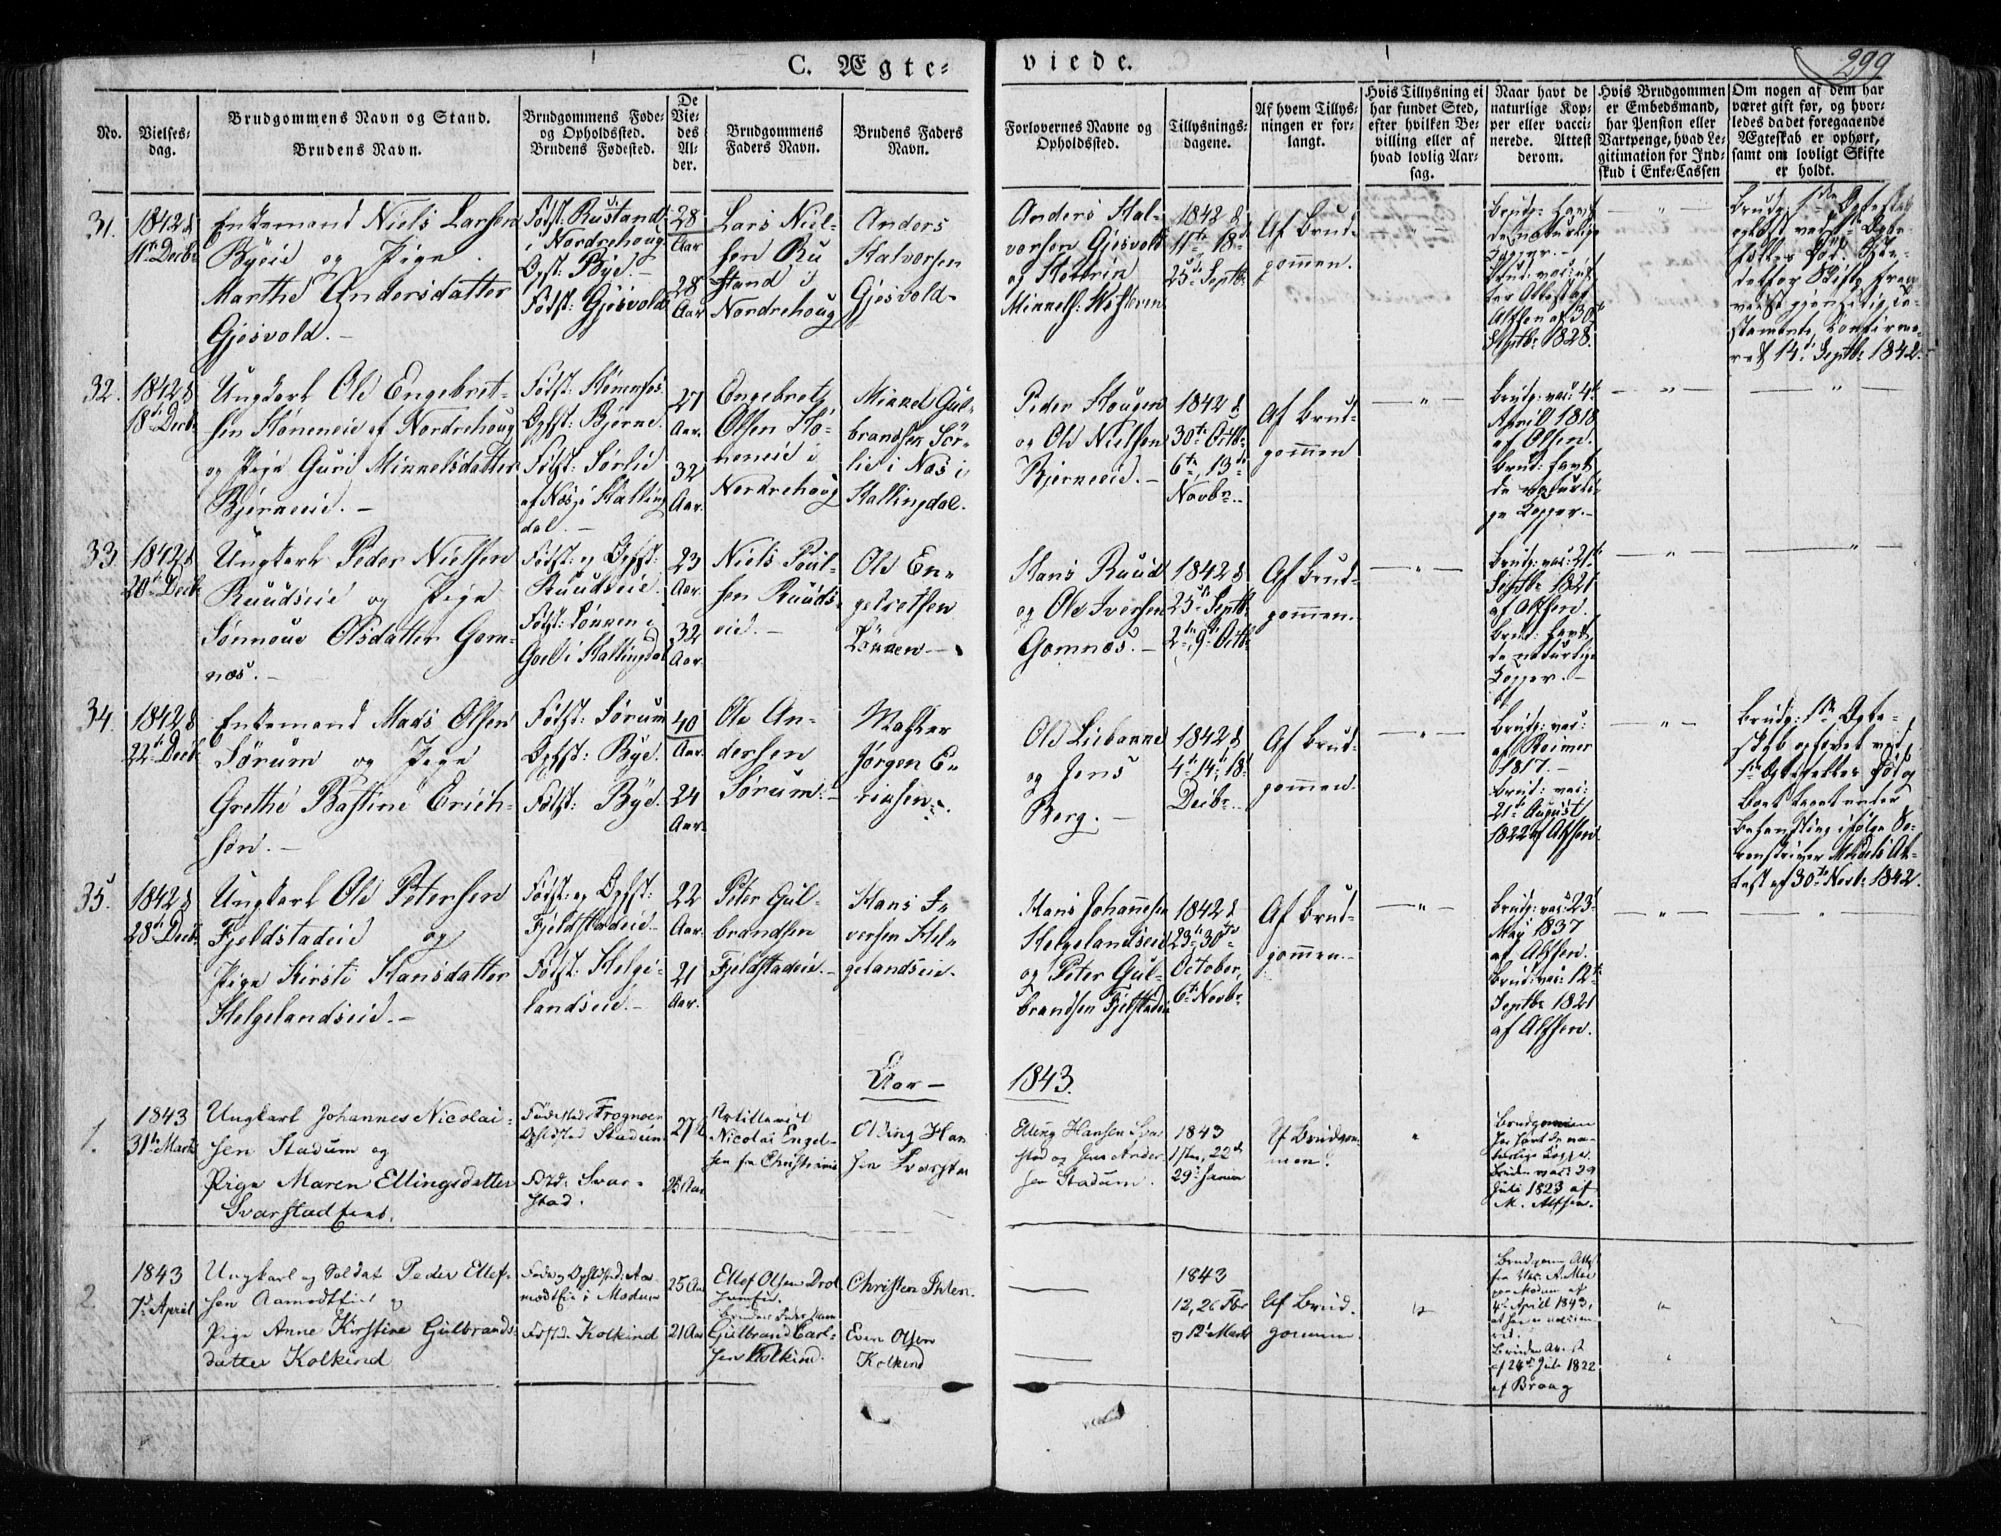 C. Ægte-
viede.
299
No.
Vielses-
dag.
Brudgommens Navn og Stand.
Brudens Navn.
Brudgommens Føde-
og Opholdssted.
Brudens Fødested.
De
Vie-
des
Al-
der.
Brudgommens
Faders Navn.
Brudens Faders
Navn.
Forlovernes Navne og
Opholdssted.
Tillysnings-
dagene.
Af hvem Tillys-
ningen er for-
langt.
Hvis Tillysning ei
har fundet Sted,
efter hvilken Be-
villing eller af
hvad lovlig Aar-
sag.
Naar havt de
naturlige Kop-
per eller vacci-
nerede. Attest
derom.
Hvis Brudgommen
er Embedsmand,
har Pension eller
Vartpenge, hvad Le-
gitimation for Ind-
skud i Enke-Cassen
Om nogen af dem har
været gift før, og hvor-
ledes da det foregaaende
Ægteskab er ophørt,
samt om lovligt Skifte
er holdt.
31.
1842 d
11te Decbr
Enkemand Niels Larsen
Byeie og Pige
Marthe Andersdatter
Gjesvold.
Fødst: Rustand
i Nordrehoug
Ophst: Bye.
Fødst: Gjesvold
28
Aar
28
Aar
Lars Niel-
sen Ru
stand i
Nordrehoug
Anders
Halvorsen
Gjesvold
Anders Hal-
vorsen Gjesvold
og
1842 d
11te 18d
25de Septbr
Af Brud-
gommen.
Brudg: havt
de naturlige
Kopper.
Brud: vac: ef
ter Attest af
Alfsen af 30te
Septbr 1828.
Brudg: 1ste Ægteskab
14de Septbr 1842.
32.
1842 d
18de Decbr
Ungkarl Ole Engebret-
sen Høneneie af Nordrehoug
og Pige Guri Mikkelsdatter
Bjerneeie.
Fødst: Hønenfos
Ophst: Bjerne.
Fødst: Sørlie
af Næs i Halling
dal.
27
Aar.
32
Aar.
Engebret
Olsen Hø-
neneie i
Nordrehoug
Mikkel Gul-
brandsen Sør-
lie i Næs i
Hallingdal.
Peder Hougen
og Ole Nielsen
Bjerneeie.
1842 d
30te Octbr
6te, 13de
Novbr.
Af Brud-
gommen
Brudg: vac: 4de
April 1818
af Alfsen.
Brud: havt
de naturli-
ge Kopper.
33.
1842 d
20de Decbr
Ungkarl Peder Nielsen
Ruudseie og Pige
Sønnoue Olsdatter Gom-
næs.
Fødst: og Ophst:
Ruudseie.
Fødst: Lønnen i
Goel i Hallingdal
23
Aar.
32
Aar.
Niels Poul-
sen Ruuds-
eie.
Ole En-
gebretsen
Lønnen
Hans Ruud
og Ole Iversen
Gomnæs.
1842 d
25de Septbr
2den, 9de Octbr
Af Brud-
gommen.
Brudg: vac: 21de
Septbr 1821
af Alfsen.
Brud: havt
de naturlige
Kopper.
34.
1842 d
22de Decbr
Enkemand Mads Olsen
Sørum og Pige
Grethe Bastine Erich-
sen.
Fødst: Sørum
Ophst: Bye.
Fødst: Bye.
40
Aar.
24
Aar.
Ole An-
dersen
Sørum.
Jørgen E-
richsen.
Ole Liebanne
og Jens
Berg.
1842 d
4de 14de, 18de
Decbr.
Af Brud-
gommen.
Brudg: vac:
af Reimer
1817.
Brud: vac:
21de August
1822 af Alfsen
Brudg: 1ste Ægte-
skab ophævet ved
1ste Ægtefelles Død og
Boet taget under
Behandling ifølge So-
renskriver At-
test af 30te Novbr 1842.
35.
1842 d
28de Decbr
Ungkarl Ole Petersen
Fjeldstadeie og
Pige Kirsti Hansdatter
Helgelandseie.
Fødst: og Ophst:
Fjeldstadeie
Fødst: Helge-
landseie.
22
Aar.
21
Aar.
Peter Gul-
brandsen
Fjeldstadeie.
Hans I-
versen Hel-
gelandseie.
Hans Johannesen
Helgelandseie
og Peter Gul-
brandsen Fjeldstadeie
1842 d
23de 30te
October,
6te Novbr
Af Brud-
gommen.
Brudg: vac: 23de
Maj 1837
af Alfsen.
Brud: vac: 12te
Septbr 1821
af Alfsen.
Aar
1843.
1.
1843
31te Marts
Ungkarl Johannes Nicolai-
sen Stadum og
Pige Maren Ellingsdatter
Svarstad
Fødested: Frognoen
Opholdsted Stadum
Fød: Svar-
stad.
27
25 Aar
Artillerist
Nicolai Engel-
sen fra Christiania
Elling Han
sen Svarstad
Elling Hansen Svar
stad og Jens Ander
sen Stadum.
1843
15den, 22de
29de Januar
Af Brudgom-
men.
Brudgommen
har havt de na-
turlige Kopper.
Bruden vac: 29
Juli 1823 af
M. Alfsen.
2.
1843
7de April
Ungkarl og Soldat Peder Ellef-
sen Aamodteie og
Pige Anne Kirstine Gulbrands-
datter Kolkind
Føde og Opholdsted: Aa-
modteie i Modum
Fødsted Kolkind
25 Aar
21 Aar
Ellef Olsen
Brudens Faders Navn
Gulbrand Carl-
sen Kolkind.
Christen
Even Olsen
Kolkind
1843
12, 26 Febr
og 12te Marts
Af Brud-
gommen
4de April 1843,
af 24de Juli 1822
af Braag